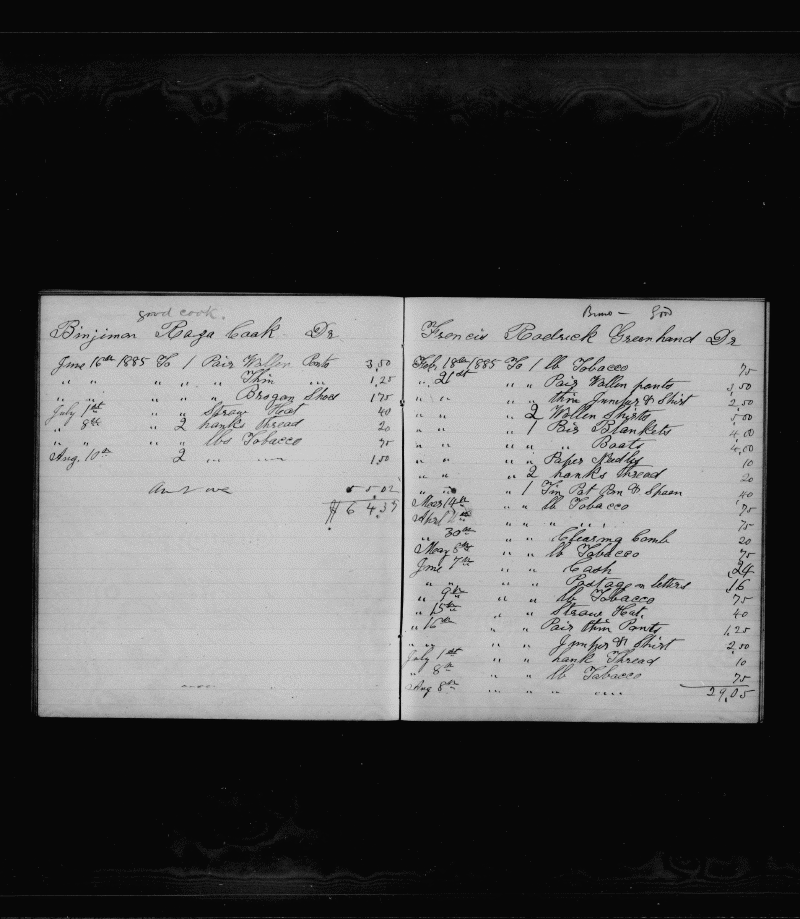 good cook.
Binjiman Raza Cook Dr
June 16th 1885 To 1 Pair Wollen Pants 3,50
" " " " " Thin " 1,25
" " " " " Brogan Shoes 175
July 1st " " Straw Hat 40
" 8th " 2 hanks thread 20
" " " " lbs Tobacco 75
Aug. 10th 2 " " 1,50
55,02
$64,37
Good
Francis Rodrick Greenhand Dr
Feb. 18th 1885 To 1 lb Tobacco 75
" 21st " " Pair Wollen pants 3,50
" " " " thin Jumper & Shirt 2,50
" " " 2 Wollen Shirts 5,00
" " " 1 Pair Blankets 4,00
" " " " " Boots 4,00
" " " " Paper Nedles 10
" " " 2 hanks thread 20
" " " 1 Tin Pot Pan & Spoon 40
Mar 14th " " lb Tobacco 75
April 2nd " " " " 75
" 30th " " Clearing Comb 20
May 8th " " lb Tobacco 75
June 7th " " Cash 24
" " " " Postage on letters 16
" 9th " " lb Tobacco 75
" 15th " " Straw Hat. 40
" 16th " " Pair thin Pants 1,25
" " " " Jumper & Shirt 2,50
July 1st " " hank Thread 10
" 8th " " lb Tobacco 75
Aug 8th " " " "
29,05